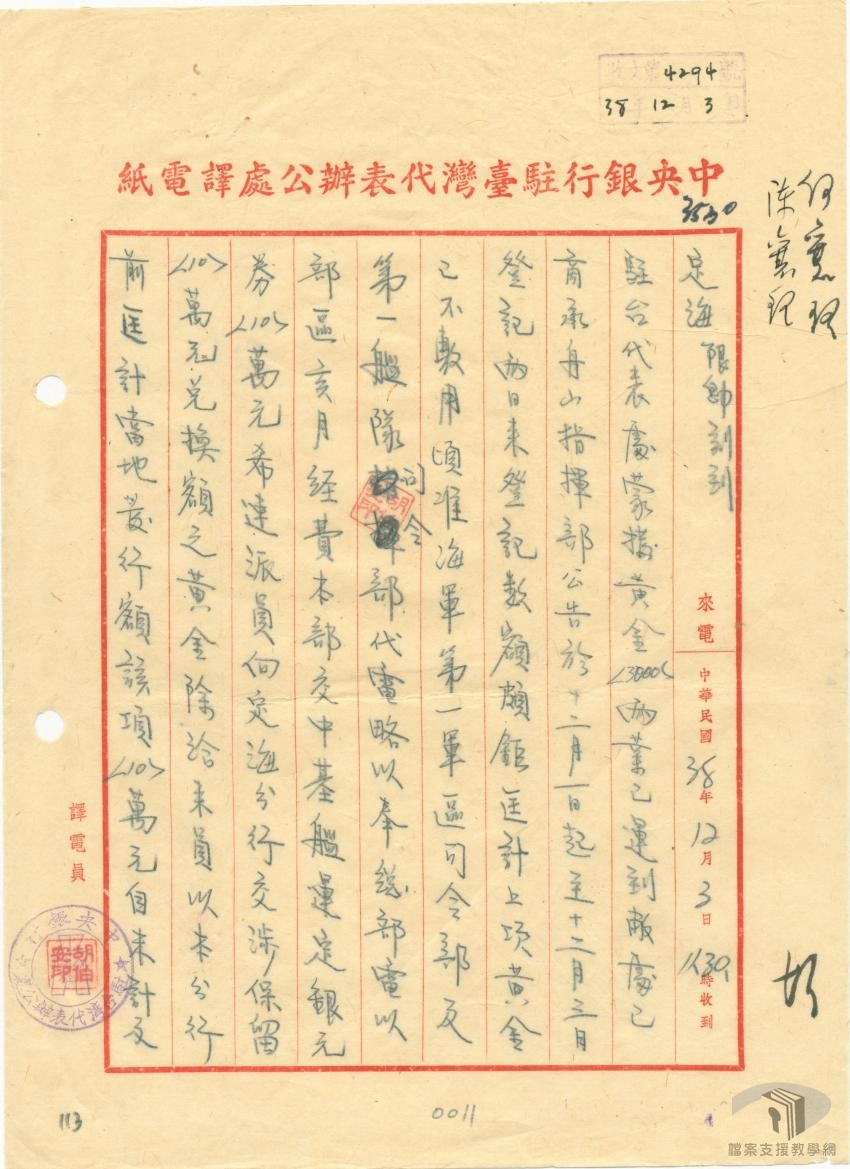 收文第4294號
38年12月3日
中央銀行駐臺灣代表辦公處譯電紙
3530
來電 中華民國38年12月3日1130時收到
定海 限即刻到
駐台代表處蒙撥黃金<3000<兩業已運到敝處已
商承舟山指揮部公告於十二月一日起至十二月三日
登記兩日來登記數額頗鉅匡計上項黃金
已不敷用頃准海軍第一軍區司令部及
第一艦隊司令部代電略以奉總部電以
部區亥月經費本部交中基艦運定銀元
券<10>萬元希速派員向定海分行交涉保留
<10>萬元兌換額之黃金除洽來員以本分行
前匡計當地發行額該項<10>萬元自未計及
譯電員
中央銀行駐台灣代表辦公處
胡伯安印
113
0011
檔案支援教學網